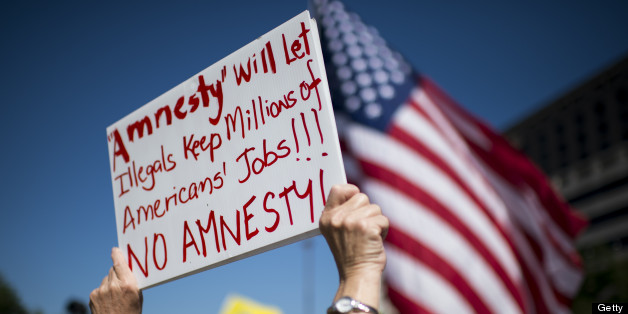 "Amnesty" Will Let
Illegals Keep Millions of
Americans' Jobs!!!
NO AMNESTY!
Getty